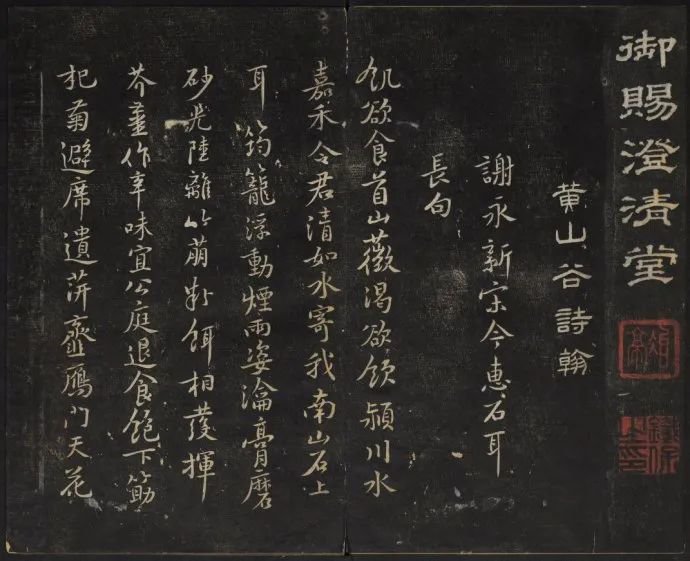 御賜澄清堂
鐵保之印
黄山谷詩翰
謝永新宋令惠石耳
長句
飢欲食首山薇渴欲飲潁川水
嘉禾令君清如水寄我南山石上
耳筠籠浮動煙雨姿瀹膏磨
砂光陸離竹萌粉餌相發揮
芥薑作辛味宜公庭退食飽下筯
杞菊避席遺萍虀鴈門天花